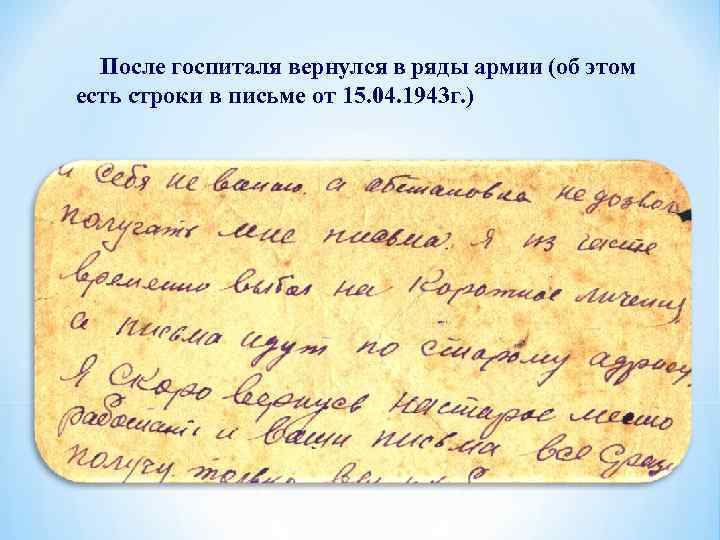 После госпиталя вернулся в ряды армии (об этом
есть строки в письме от 15.04.1943г.)
и себя не вапаю, а абстановка не дозвол
получать мне письма. Я из части
временно выбыл на короткое личении,
а письма идут по старому адрису.
Я скоро вернусь на старое место
работать и ваши письма все сразу
получу. только